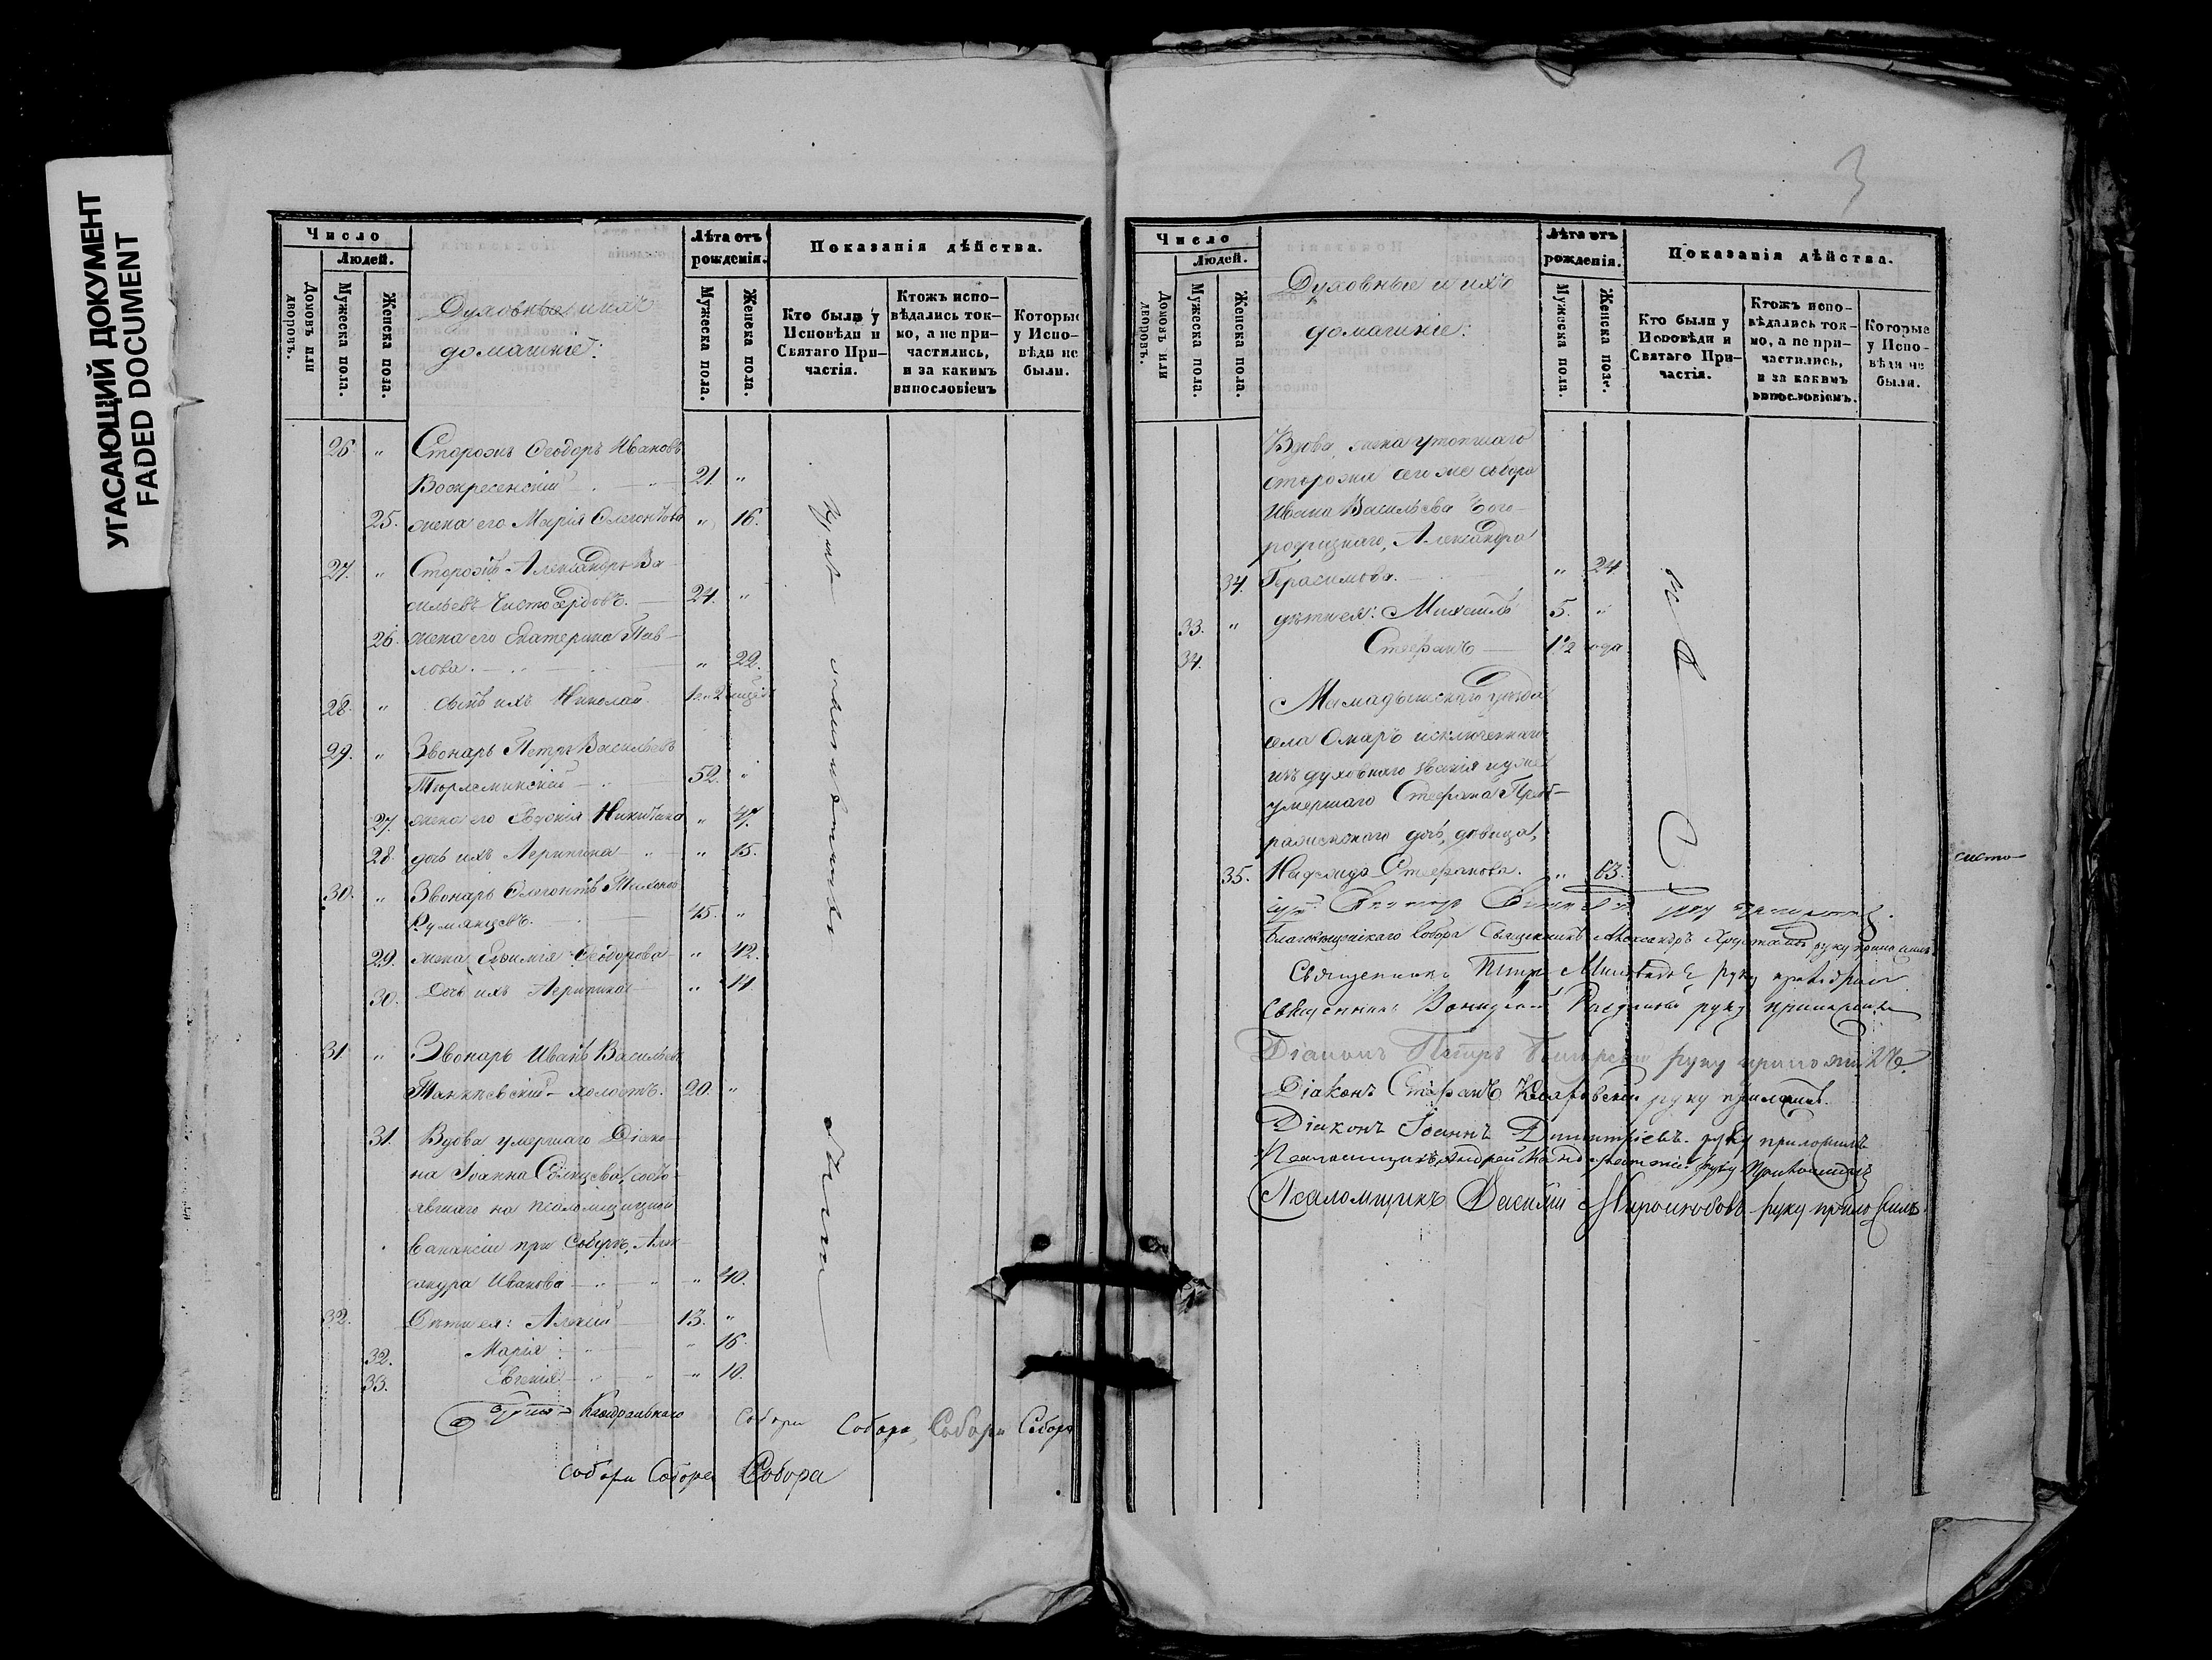 УГАСАЮЩИЙ ДОКУМЕНТ
FADED DOCUMENT
Число
Людей.
Домовъ или дворовъ.
Мужеска пола.
Женска пола.
Духовные и ихъ
домашніе:
Лѣта отъ
рожденія.
Мужеска пола.
Женска пола.
Показанія дѣйства.
Кто были у
Исповѣди и
Святаго При-
частія.
Ктожъ испо-
вѣдались ток-
мо, а не при-
частились,
и за какимъ
винословіемъ
Которые
у Испо-
вѣди не
были.
26. " Сторожъ Ѳеодоръ Ивановъ
Воскресенскій 21. "
25. жена его Марія Олегонтова " 16.
27. " Сторожъ Александръ Ва-
сильевъ Чистосердовъ. 24. "
26. жена его Екатерина Пав-
лова. " 22.
28. " сынъ ихъ Николай
29. " Звонарь Петръ Васильевъ
Тюрлеминскій 52. "
27. жена его Евдокія Никитина " 47.
28. дочь ихъ Агриппина " 15.
30. " Звонарь Олегонтъ Тихонов
Румянцевъ. 45. "
29. жена Евфимія Ѳеодорова " 42.
30. Дочь ихъ Агриппина " 11
31 " Звонарь Иванъ Васильевъ
Танкѣевскій - холостъ. 20. "
31. Вдова умершаго Діако-
на Іоанна Солнцева, состо-
явшаго на псаломщицкой
вакансіи при Соборѣ, Алек-
сандра Иванова " 40.
32. Дѣти ея: Алексій 13. "
32. Марія " 16.
33. Евгенія " 10.
Каѳедральнаго Собора Собора, Собора Собора
Собора Собора Собора
3
Число
Людей.
Домовъ или дворовъ.
Мужеска пола.
Женска пола.
Духовные и ихъ
домашніе:
Лѣта отъ
рожденія.
Мужеска пола.
Женска пола.
Показанія дѣйства.
Кто были у
Исповѣди и
Святаго При-
частія.
Ктожъ испо-
вѣдались ток-
мо, а не при-
частились,
и за какимъ
винословіемъ.
Которые
у Испо-
вѣди не
были.
Вдова, жена утопшаго
сторожа сего же собора
Ивана Васильева Бого-
родицкаго, Александра
34. Герасимова. " 24.
33. " дѣти ея: Михаилъ 5. "
34. Стефанъ 1 1/2 года
Мамадышскаго уѣзда
села Омаръ исключеннаго
изъ духовнаго званія и уже
умершаго Стефана Преоб-
раженскаго дочь, дѣвица,
35. Надежда Стефанова. " 63.
Благовѣщенскаго Собора Священникъ Александръ руку приложилъ
Священникъ Петръ руку приложилъ
Священникъ руку приложилъ
Діаконъ Петръ руку приложилъ.
Діаконъ Стефанъ руку приложилъ.
Діаконъ Іоаннъ Димитріевъ руку приложилъ
Псаломщикъ Андрей руку приложилъ
Псаломщикъ Василій Миролюбовъ руку приложилъ